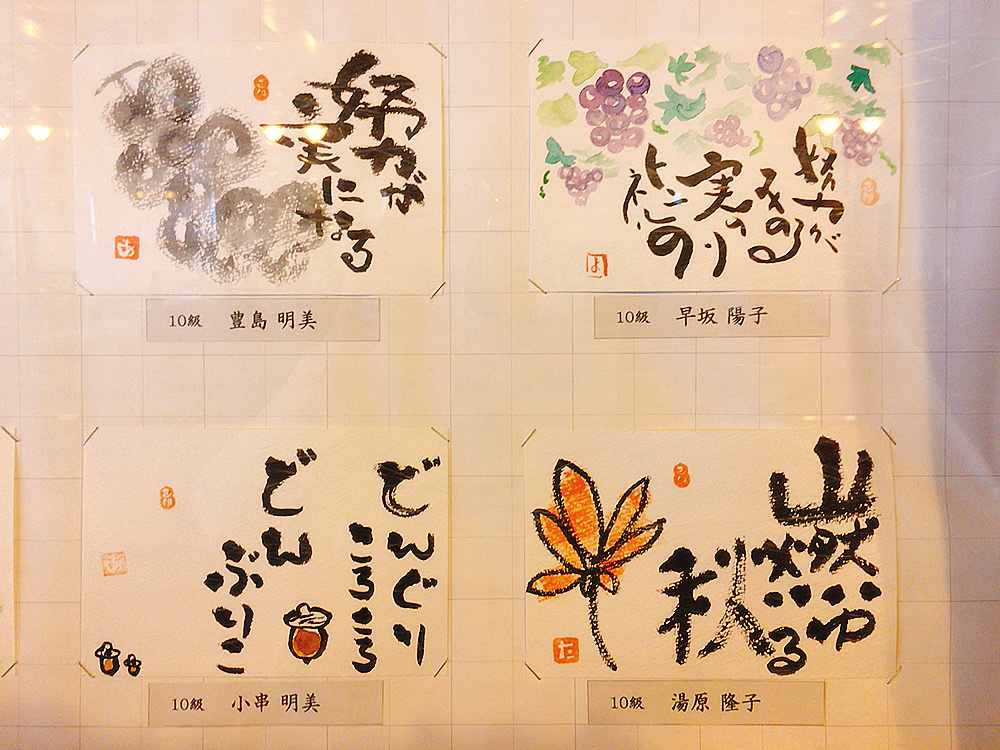 努力が
実になる
あ
10級 豊島 明美
努力が
みのる
実のり
よ
10級 早坂 陽子
どんぐり
ころころ
どん
ぶりこ
10級 小串 明美
山燃ゆる
秋
た
10級 湯原 隆子